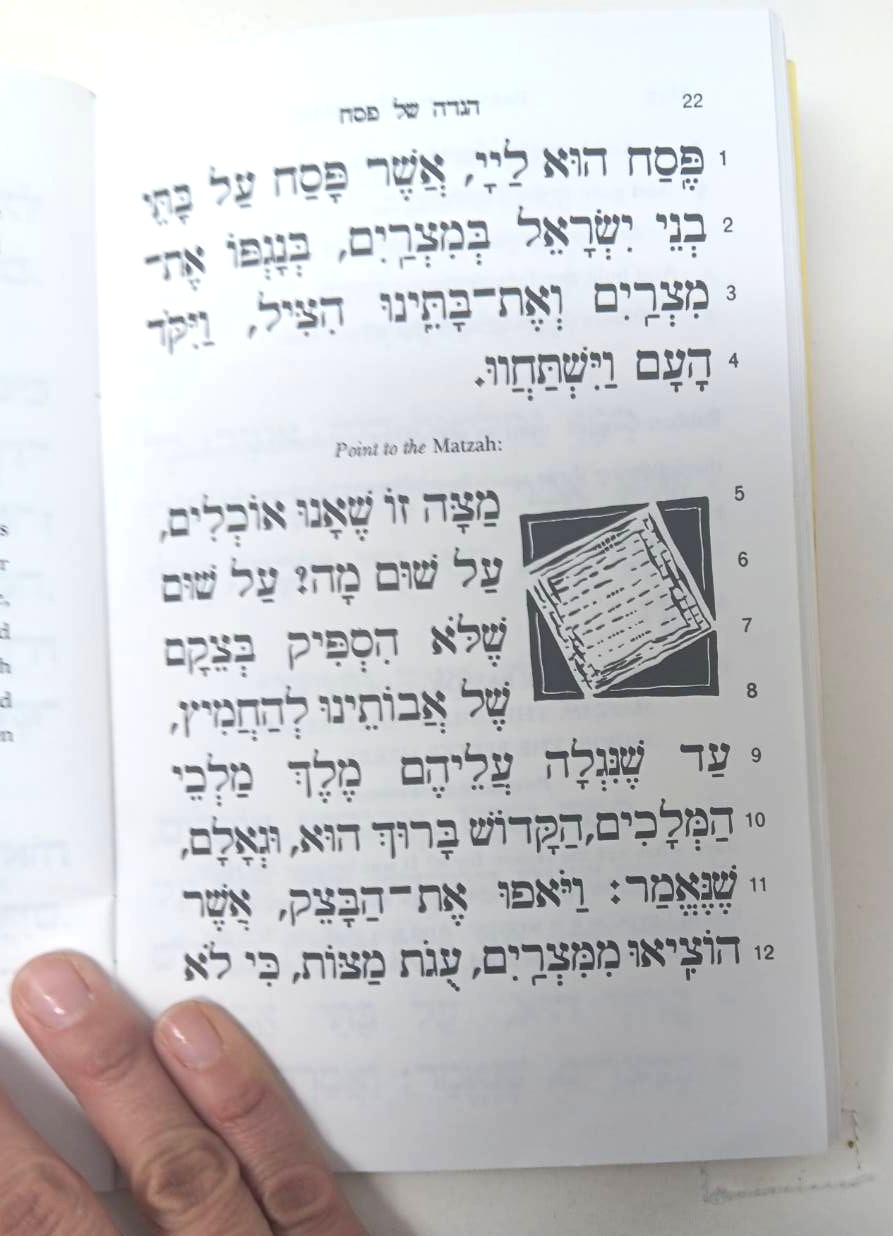 הגדה של פסח 22
1 פֶּסַח הוּא לַיְיָ, אֲשֶׁר פָּסַח עַל בָּתֵּי
2 בְנֵי יִשְׂרָאֵל בְּמִצְרַיִם, בְּנָגְפּוֹ אֶת־
3 מִצְרַיִם וְאֶת־בָּתֵּינוּ הִצִּיל, וַיִּקֹּד
4 הָעָם וַיִּשְׁתַּחֲווּ.
Point to the Matzah:
5 מַצָּה זוֹ שֶׁאָנוּ אוֹכְלִים,
6 עַל שׁוּם מָה? עַל שׁוּם
7 שֶׁלֹּא הִסְפִּיק בְּצֵקָם
8 שֶׁל אֲבוֹתֵינוּ לְהַחֲמִיץ,
9 עַד שֶׁנִּגְלָה עֲלֵיהֶם מֶלֶךְ מַלְכֵי
10 הַמְּלָכִים, הַקָּדוֹשׁ בָּרוּךְ הוּא, וּגְאָלָם,
11 שֶׁנֶּאֱמַר: וַיֹּאפוּ אֶת־הַבָּצֵק, אֲשֶׁר
12 הוֹצִיאוּ מִמִּצְרַיִם, עֻגֹת מַצּוֹת, כִּי לֹא
s
r
d
h
d
n